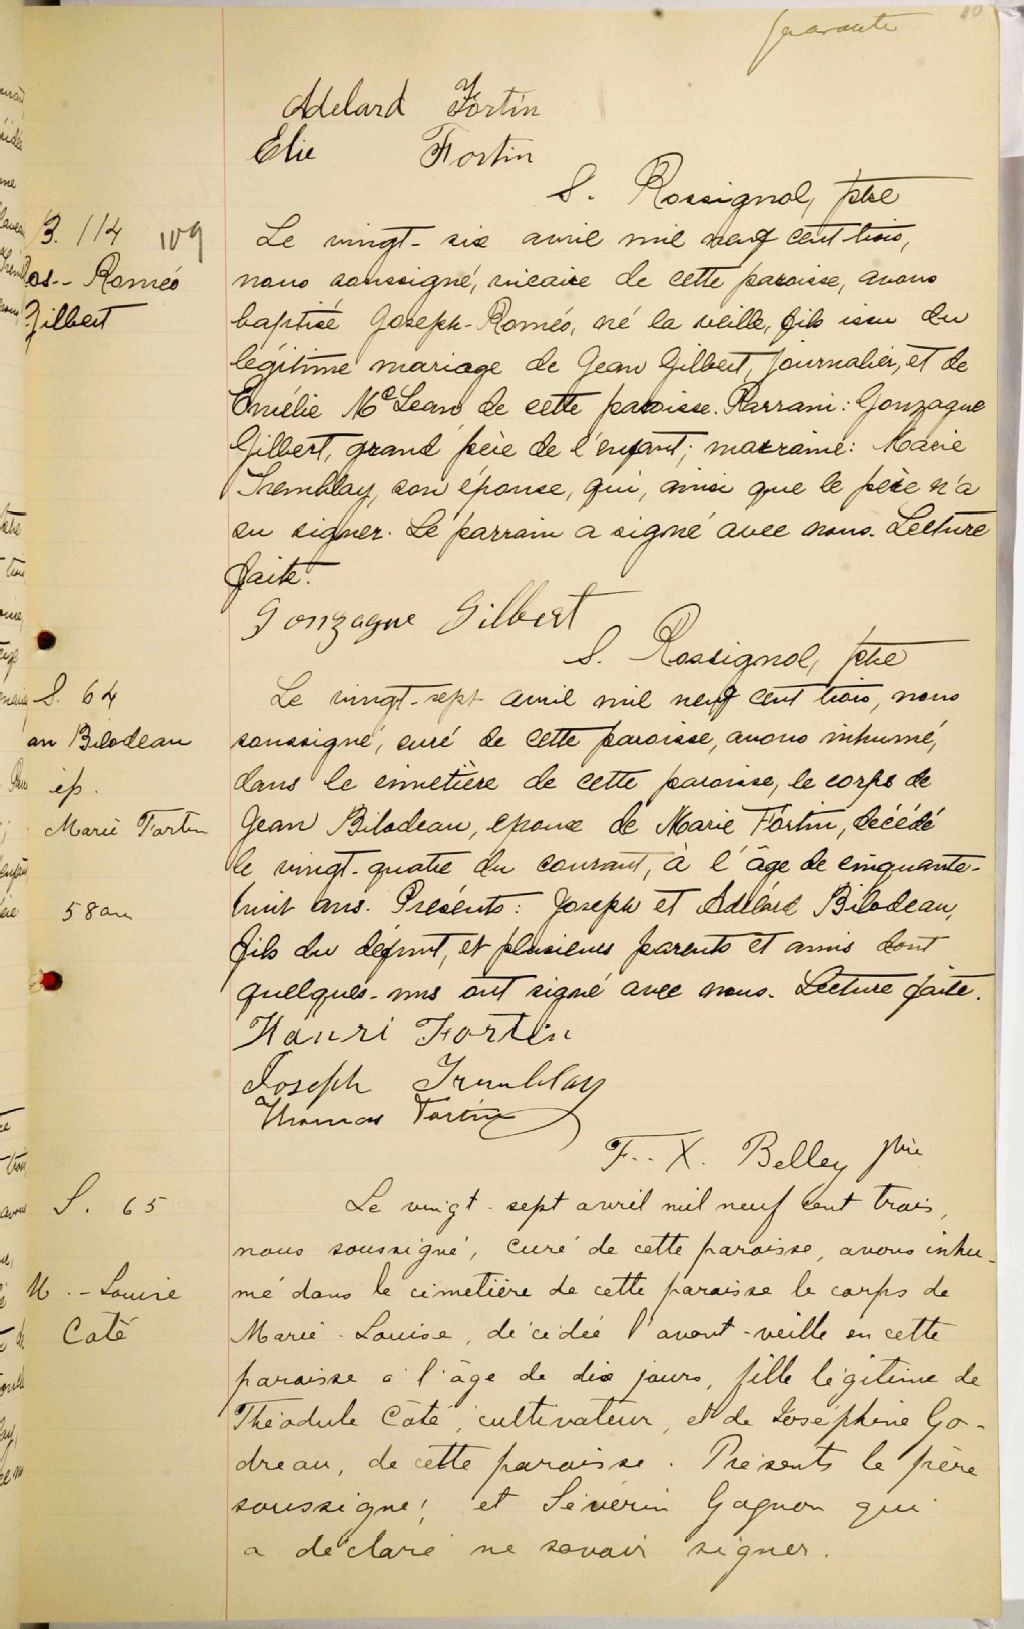 quarante
40
Adelard Fortin
Elie Fortin
S. Rossignol, ptre
B. 114 109
Jos-- Roméo
Gilbert
Le vingt-six avril mil neuf cent trois,
nous soussigné, vicaire de cette paroisse, avons
baptisé Joseph-Roméo, né la veille, fils issu du
légitime mariage de Jean Gilbert, journalier, et de
Emélie McLean de cette paroisse. Parrain: Gonzague
Gilbert, grand père de l'enfant; marraine: Marie
Tremblay, son épouse, qui, ainsi que le père n'a
su signer. Le parrain a signé avec nous. Lecture
faite.
Gonzague Gilbert
S. Rossignol, ptre
S. 64
an Bilodeau
ép.
Marie Fortin
58 ans
Le vingt-sept avril mil neuf cent trois, nous
soussigné, curé de cette paroisse, avons inhumé,
dans le cimetière de cette paroisse, le corps de
Jean Bilodeau, époux de Marie Fortin, décédé
le vingt-quatre du courant, à l'âge de cinquante-
huit ans. Présents: Joseph et Adélard Bilodeau,
fils du défunt, et plusieurs parents et amis dont
quelques-uns ont signé avec nous. Lecture faite.
Hanri Fortin
Joseph Trumblay
Thomas Fortin
F.. X. Belley ptre
S. 65
M. - Louise
Coté
Le vingt-sept avril mil neuf cent trois,
nous soussigné, curé de cette paroisse, avons inhu-
mé dans le cimetière de cette paroisse le corps de
Marie-Louise, décédée l'avant-veille en cette
paroisse à l'âge de dix jours, fille légitime de
Théodule Côté, cultivateur, et de Joséphine Go-
dreau, de cette paroisse. Présents le père
soussigné, et Sévérin Gagnon qui
a déclaré ne savoir signer.